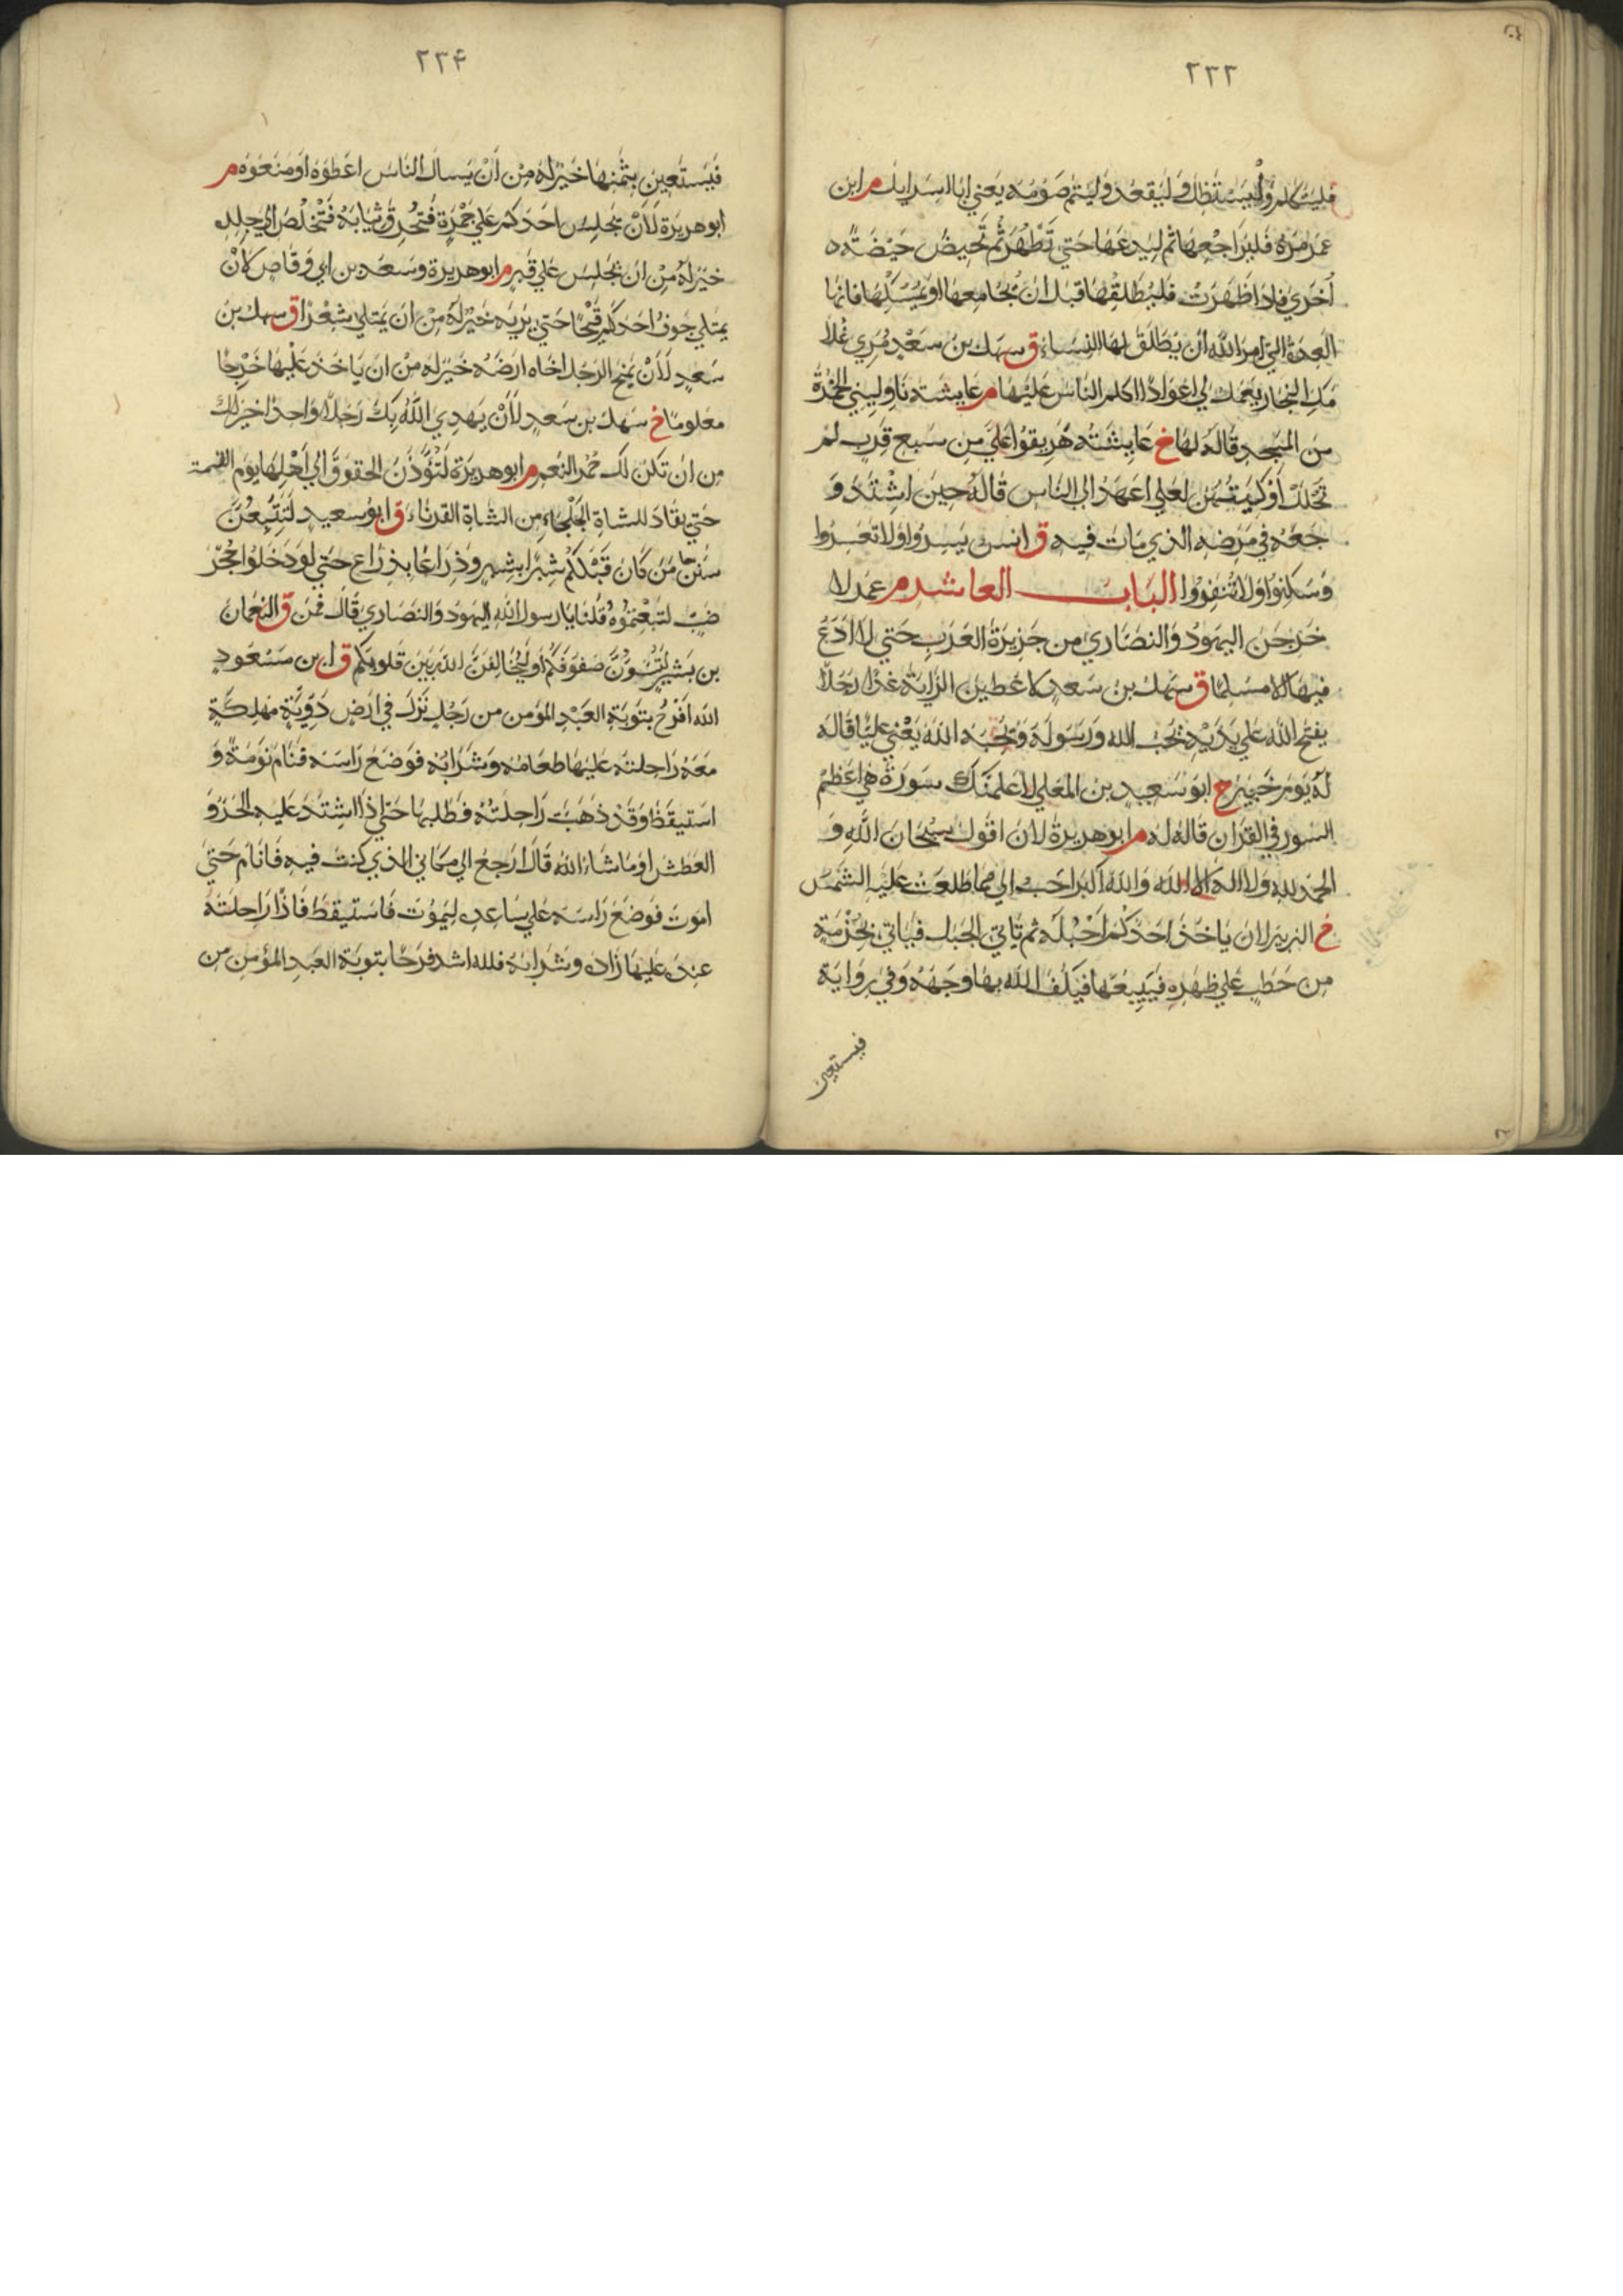 ٢٣٣
فليتكلم وليستظل وليقعد وليتم صومه يعني ابا اسرايل م ابن
عمر مره فليراجعها ثم ليدعها حتي تطهر ثم تحيض حيضة
أخري فاذا طهرت فليطلقها قبل ان يجامعها او يمسكها فانها
العدة التي امر الله أن يطلق لها النساء ق سهل بن سعد مري غلا
مك النجار يعمل لي اعوادا اكلم الناس عليها م عايشة ناوليني الخمرة
من المسجد قاله لها خ عايشة هريقوا علي من سبع قرب لم
تحلل أوكيتهن لعلي اعهد الي الناس قاله حين اشتد و
جعه في مرضه الذي مات فيه ق انس يسروا ولا تعسروا
وسكنوا ولا تنفروا الباب العاشر م عمر لا
خرجن اليهود والنصاري من جزيرة العرب حتي لا ادع
فيها الا مسلما ق سهل بن سعد لاعطين الراية غدا رجلا
يفتح الله علي يديه يحب الله ورسوله ويحبه الله يعني عليا قاله
له يوم خيبر خ ابو سعيد بن المعلي لاعلمنك سورة هي اعظم
السور في القران قاله له م ابو هريرة لان اقول سبحان الله و
الحمد لله ولا اله الا الله والله اكبر احب الي مما طلعت عليه الشمس
خ الزبير لان ياخذ احدكم احبله ثم ياتي الجبل فياتي بحزمة
من حطب علي ظهره فيبيعها فيكف الله بها وجهه وفي رواية
فيستعين
٢٣۴
فيستعين بثمنها خير له من أن يسال الناس اعطوه او منعوه م
ابو هريرة لأن يجلس احدكم علي جمرة فتحرق ثيابه فتخلص الي جلده
خير له من ان يجلس علي قبر م ابو هريرة وسعد بن ابي وقاص لان
يمتلي جوف احدكم قيحا حتي يريه خير له من ان يمتلي شعرا ق سهل بن
سعد لأن يمنح الرجل اخاه ارضه خير له من ان ياخذ عليها خرجا
معلوما خ سهل بن سعد لأن يهدي الله بك رجلا واحدا خير لك
من ان تكن لك حمر النعم م ابو هريرة لتؤدن الحقوق الي أهلها يوم القيمة
حتي يقاد للشاة الجلحاء من الشاة القرناء ق ابو سعيد لتتبعن
سنن من كان قبلكم شبرا بشبر وذراعا بذراع حتي لو دخلوا جحر
ضب لتبعتموه قلنا يا رسول الله اليهود والنصاري قال فمن ق النعمان
بن بشير لتسون صفوفكم أو ليخالفن الله بين قلوبكم ق ابن مسعود
الله افرح بتوبة العبد المؤمن من رجل نزل في ارض دوية مهلكة
معه راحلته عليها طعامه وشرابه فوضع راسه فنام نومة و
استيقظ وقد ذهبت راحلته فطلبها حتي اذا اشتد عليه الحر و
العطش او ما شاء الله قال ارجع الي مكاني الذي كنت فيه فانام حتي
اموت فوضع راسه علي ساعده ليموت فاستيقظ فاذا راحلته
عنده عليها زاده وشرابه فلله اشد فرحا بتوبة العبد المؤمن من